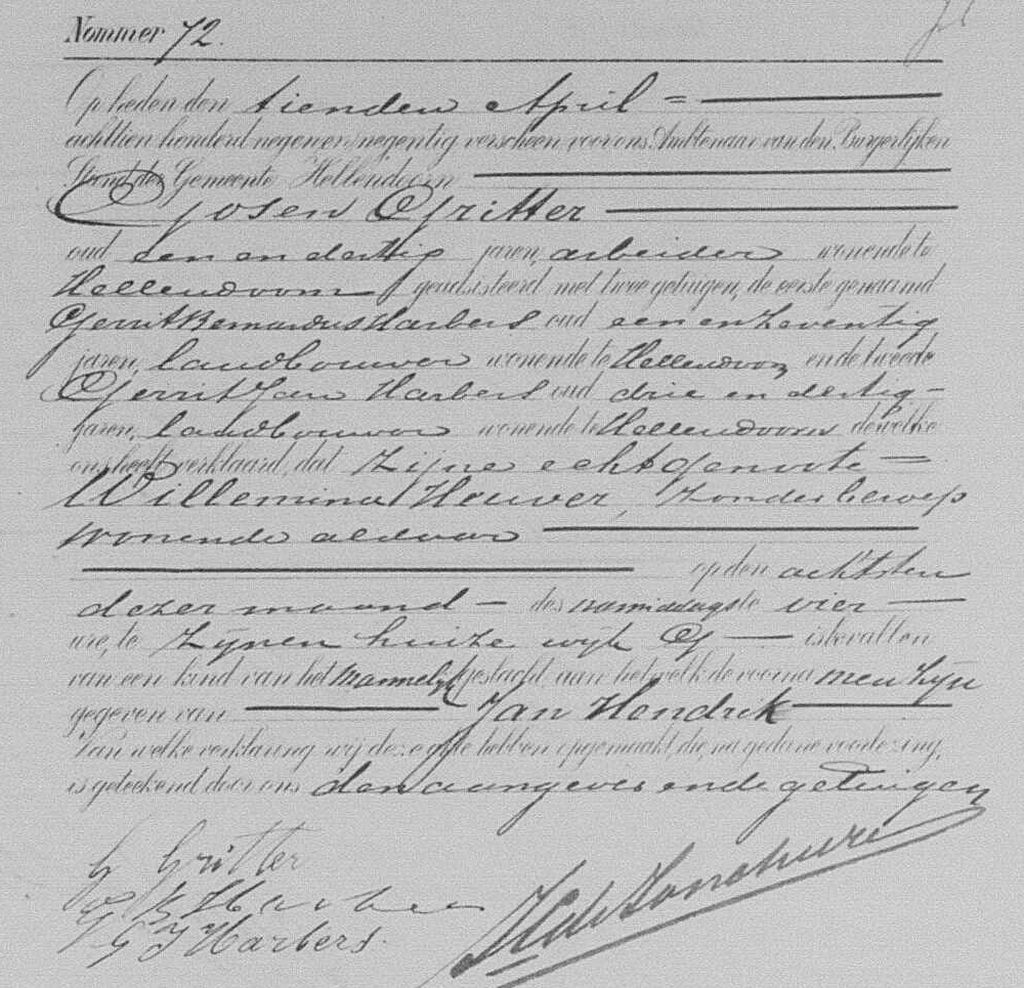 Nommer 72.
Op heden den tienden April =
achttien honderd negenen negentig verscheen voor ons Ambtenaar van den Burgerlijken
Stand der Gemeente Hellendoorn
Gosen Gritter
oud een en dertig jaren, arbeider wonende te
Hellendoorn geadsisteerd met twee getuigen, de eerste genaamd
Gerrit Bernardus Harbers oud een en zeventig
jaren, landbouwer wonende te Hellendoorn en de tweede
Gerrit Jan Harbers oud drie en dertig -
jaren, landbouwer wonende te Hellendoorn dewelke
ons heeft verklaard, dat zijne echtgenoote =
Willemina Heuver, zonder beroep
wonende aldaar
op den achtsten
dezer maand - des namiddags te vier
ure, te zijnen huize wijk G - is bevallen
van een kind van het mannelijk geslacht, aan hetwelk de voorna men zijn
gegeven van Jan Hendrik
Van welke verklaring wij deze akte hebben opgemaakt, die, na gedane voorlezing,
is geteekend door ons den aangever en de getuigen
G Gritter
G B Harbers
G J Harbers.